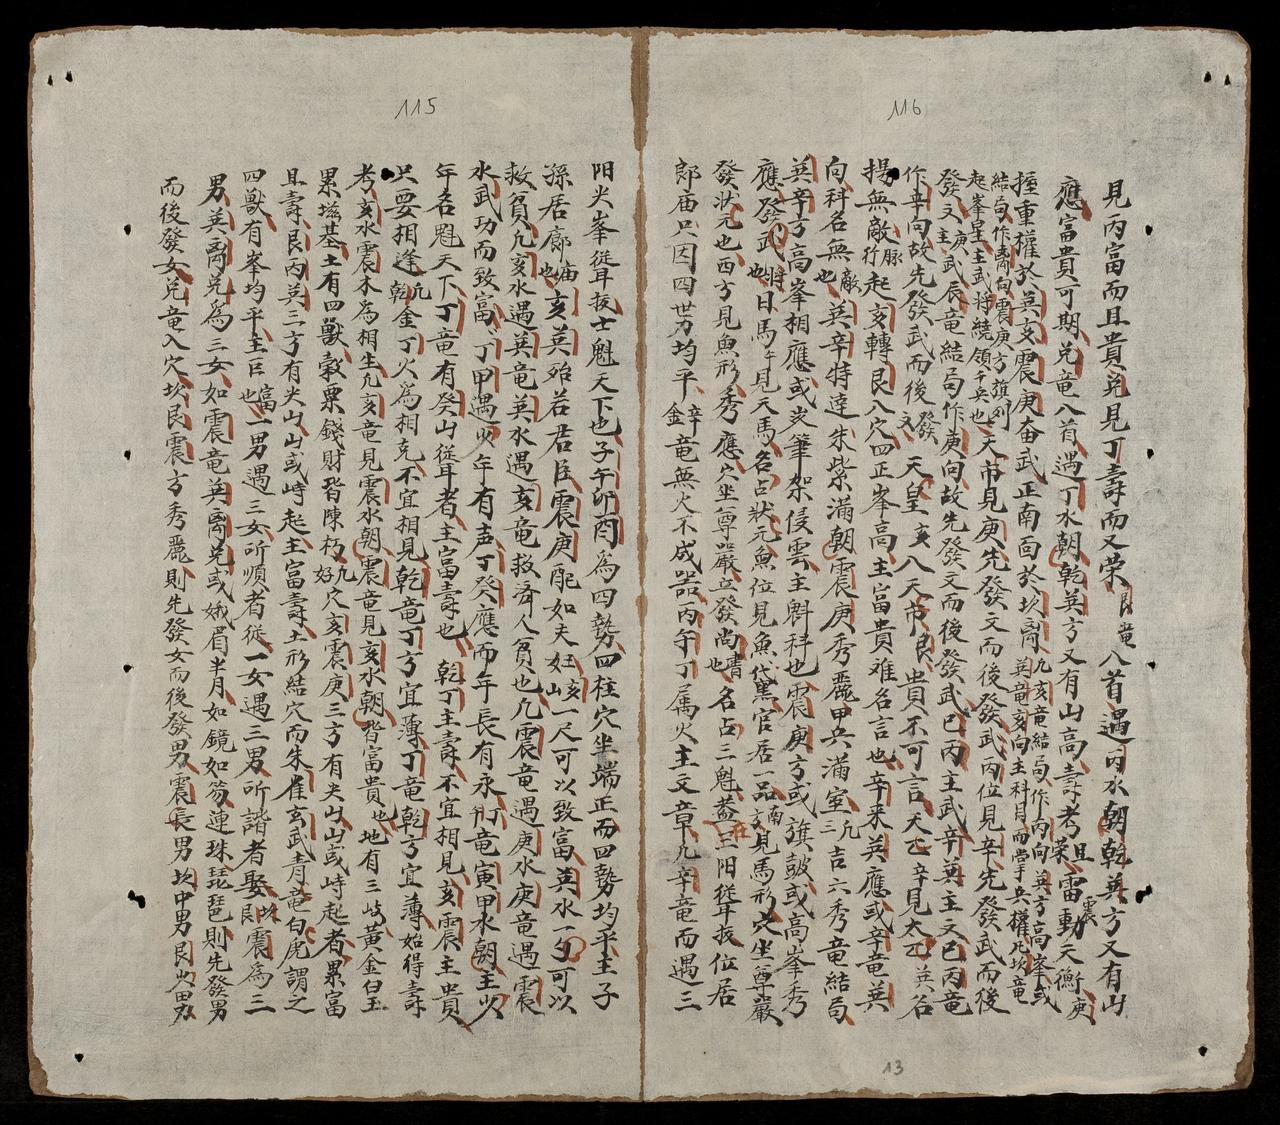 116
見丙富而且貴兌見丁壽而又荣艮竜八首遇丙水朝乾巽方又有山
應富貴可期兌竜八首遇丁水朝乾巽方又有山高壽考且荣雷動天衡庚
握重權於巽亥震庚奋武正南面於坎离
結局作离向震庚方旗列
起峯星主武将繞領千兵也天市見庚先發文而後發武丙位見辛先發武而後
發文庚主武辰竜結局作庚向故先發文而後發武巳丙主武辛巽主文巳丙竜
作辛向故先發武而後發文天皇亥八天市艮貴不可言天乙辛見太乙巽名
揚無敵行脉起亥轉艮八穴四正峯高主富貴难名言也辛来巽應或辛竜巽
向科名無敵也巽辛特達朱紫滿朝震庚秀麗甲兵滿室凡三吉六秀竜結局
巽辛方高峯相應或尖筆架侵雲主魁科也震庚方或旗皷或高峯秀
應發武将也日馬午見天馬名占状元魚位見魚代黨官居一品南方見馬形穴坐尊嚴
發状元也西方見魚形秀應穴坐尊嚴立發尚書也名占三魁葢在三阳從耳拔位居
郎庙只因四世力均平辛金竜無火不成器丙午丁属火主文章凡辛竜而遇三
13
115
阳火峯從耳拔士魁天下也子午卯酉為四勢四柱穴坐端正而四勢均平主子
孫居廊庙也亥巽殆若君臣震庚配如夫妇亥山一尺可以致富巽水一勺可以
救貧凡亥水遇巽竜巽水遇亥竜救濟人貧也凡震竜遇庚水庚竜遇震
水武功而致富丁甲遇火年有声丁癸應而年長有永凡丁竜寅甲水朝主火
年名魁天下丁竜有癸山從耳者主富壽也乾丁主壽不宜相見亥震主貴
只要相逢凡乾金丁火為相克不宜相見乾竜丁方宜薄丁竜乾方宜薄始得壽
考亥水震木為相生凡亥竜見震水朝震竜見亥水朝皆富貴也地有三岐黃金白玉
累滋基土有四獸穀粟錢財皆陳朽凡好穴亥震庚三方有尖山山或峙起者累富
且壽艮丙巽三方有尖山山或峙起主富壽土形結穴而朱雀玄武青竜白虎謂之
四獸有峯均平主巨富也一男遇三女所順者從一女遇三男所諧者娶坎艮震為三
男巽离兌為三女如震竜巽离兌或娥眉半月如鏡如笏連珠琵琶則先發男
而後發女兌竜入穴坎艮震方秀麗則先發女而後發男震長男坎中男艮少男